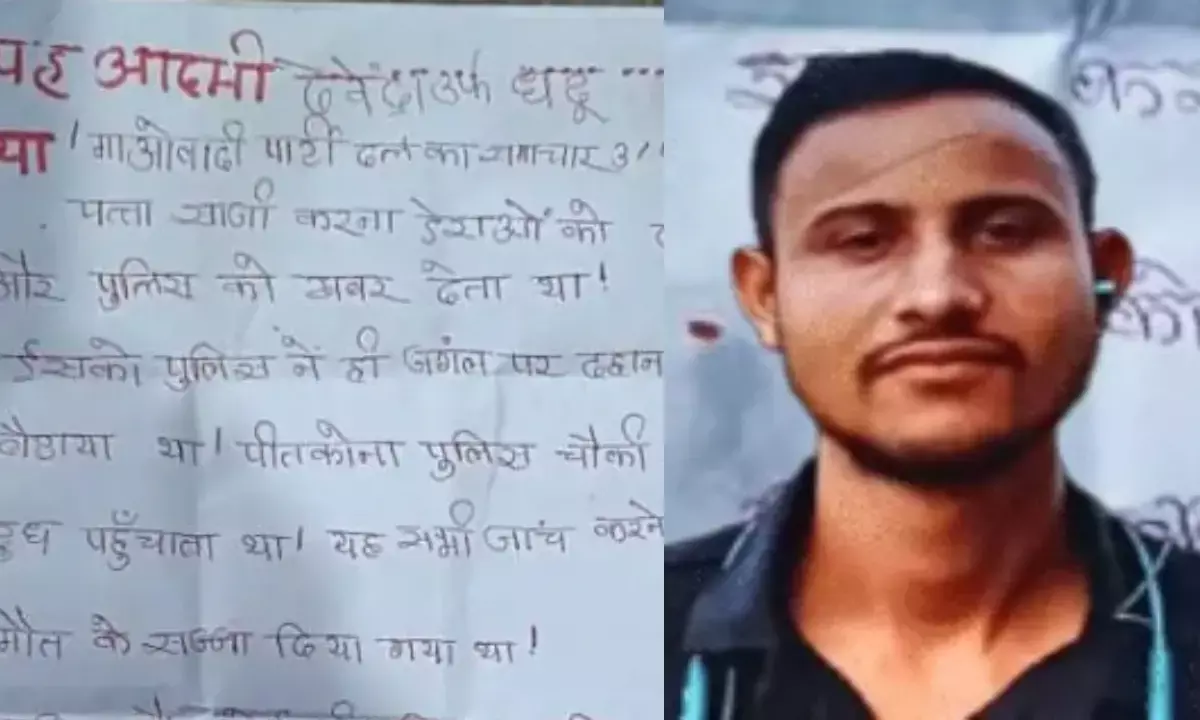 यह आदमी देवेंद्रा उर्फ धदू ...
या ! माओवादी पार्टी दल का समाचार
पत्ता साजी करना डेराओं को
और पुलिस को खबर देता था !
ईसको पुलिस नें ही जगंल पर दहान
बैठाया था ! पीतकोना पुलिस चौकी
दुध पहुँचाता था ! यह सभी जांच करने
मौत के सज्जा दिया गया था !